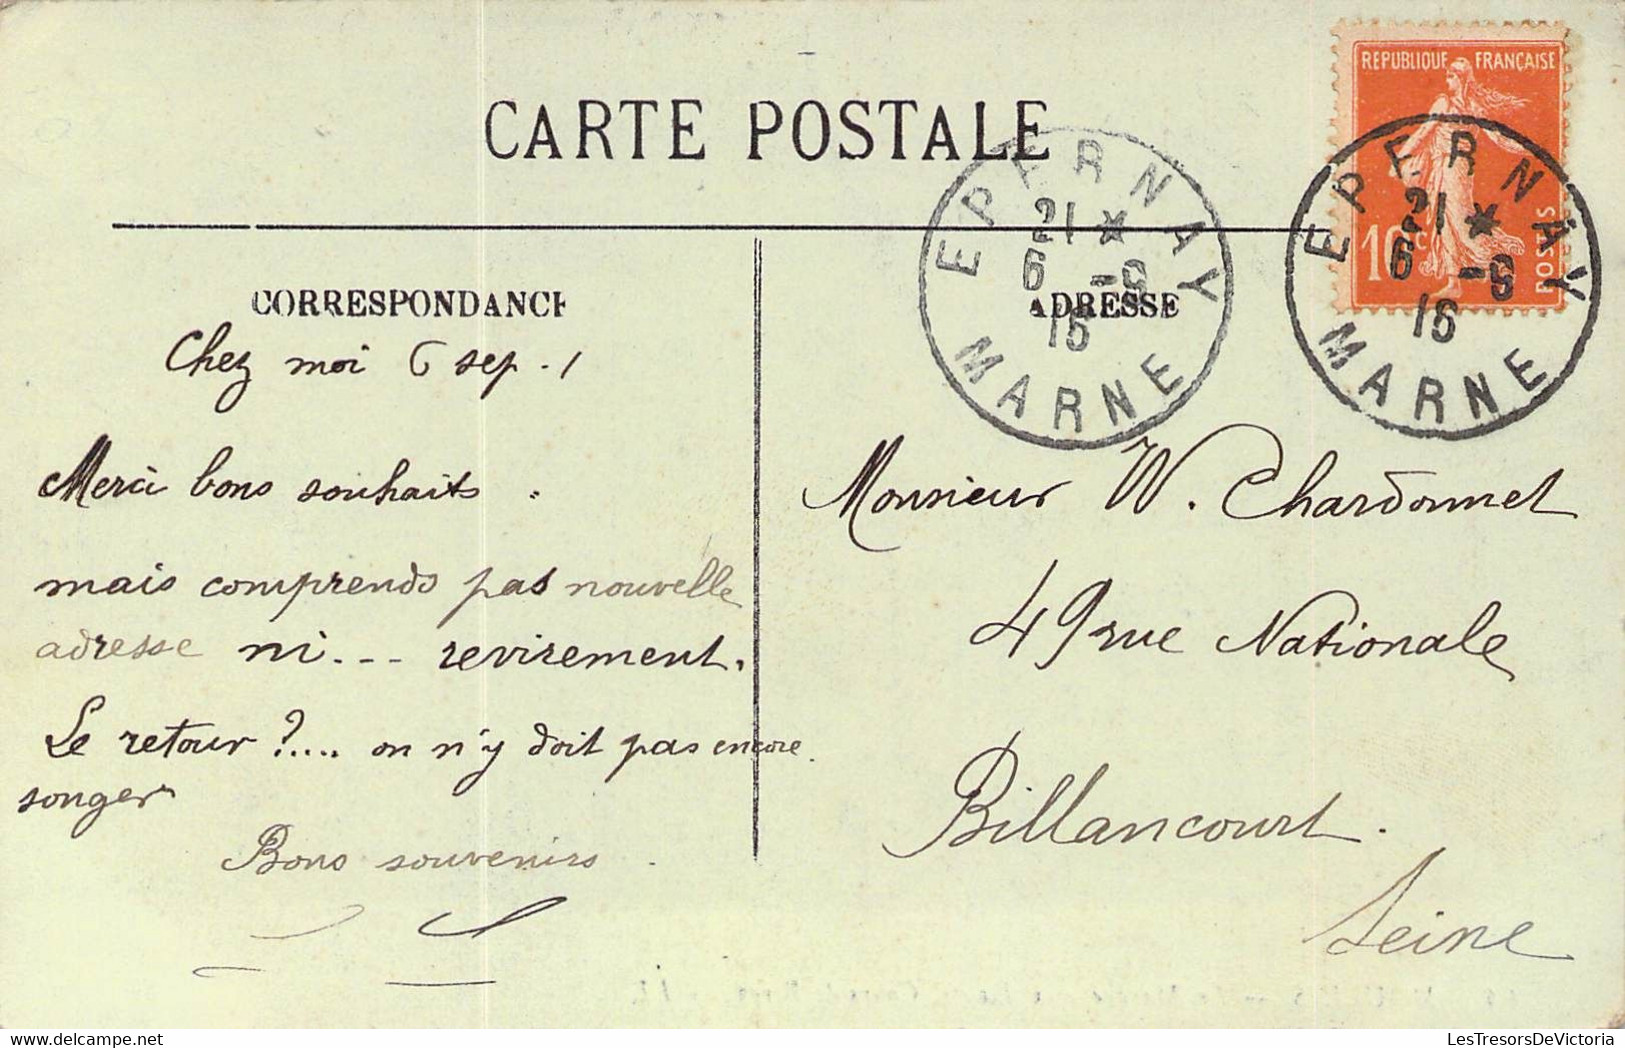 CARTE POSTALE
REPUBLIQUE FRANÇAISE
10c
POSTES
EPERNAY
21 *
6 -9
16
MARNE
EPERNAY
21 *
6 -9
16
MARNE
CORRESPONDANCE
ADRESSE
Chez moi 6 sep.
Merci bons souhaits.
mais comprends pas nouvelle
adresse ni... revirement.
Le retour ?.... on n'y doit pas encore
songer
Bons souvenirs.
Monsieur W. Chardonnet
49 rue Nationale
Billancourt.
Seine
LesTresorsDeVictoria